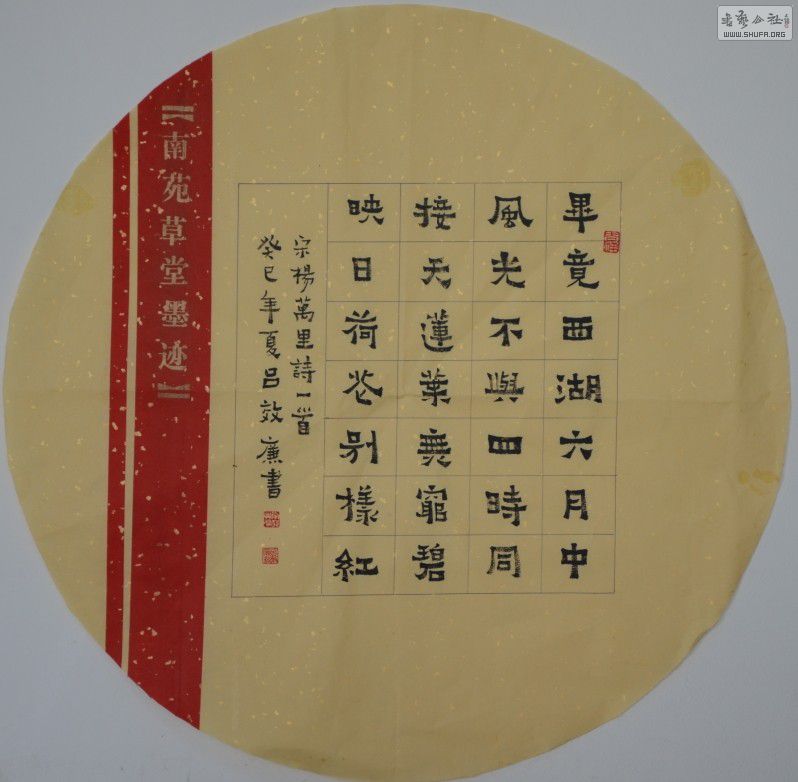 畢竟西湖六月中
風光不與四時同
接天蓮葉無窮碧
映日荷花别樣紅
宋楊萬里詩一首
癸巳年夏吕效廉書
【南苑草堂墨迹】
書藝公社
WWW.SHUFA.ORG